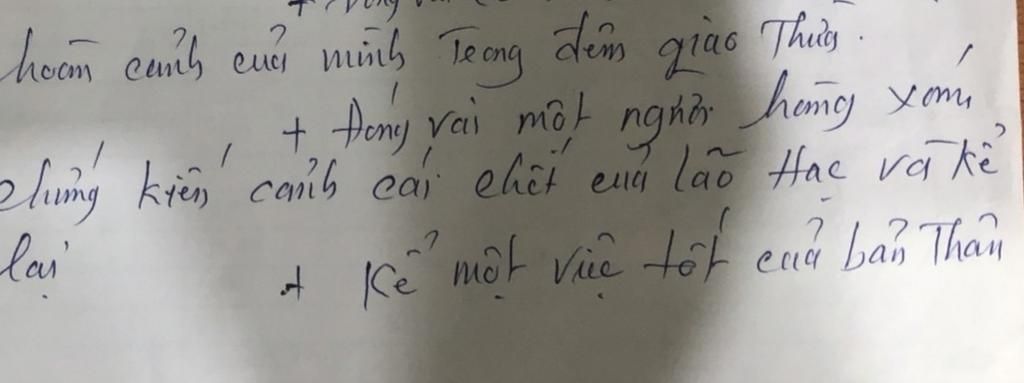 hoàn cảnh của mình trong đêm giao thừa.
+ Đóng vai một người hàng xóm
chứng kiến cảnh cái chết của lão Hạc và kể
lại
+ Kể một việc tốt của bản thân